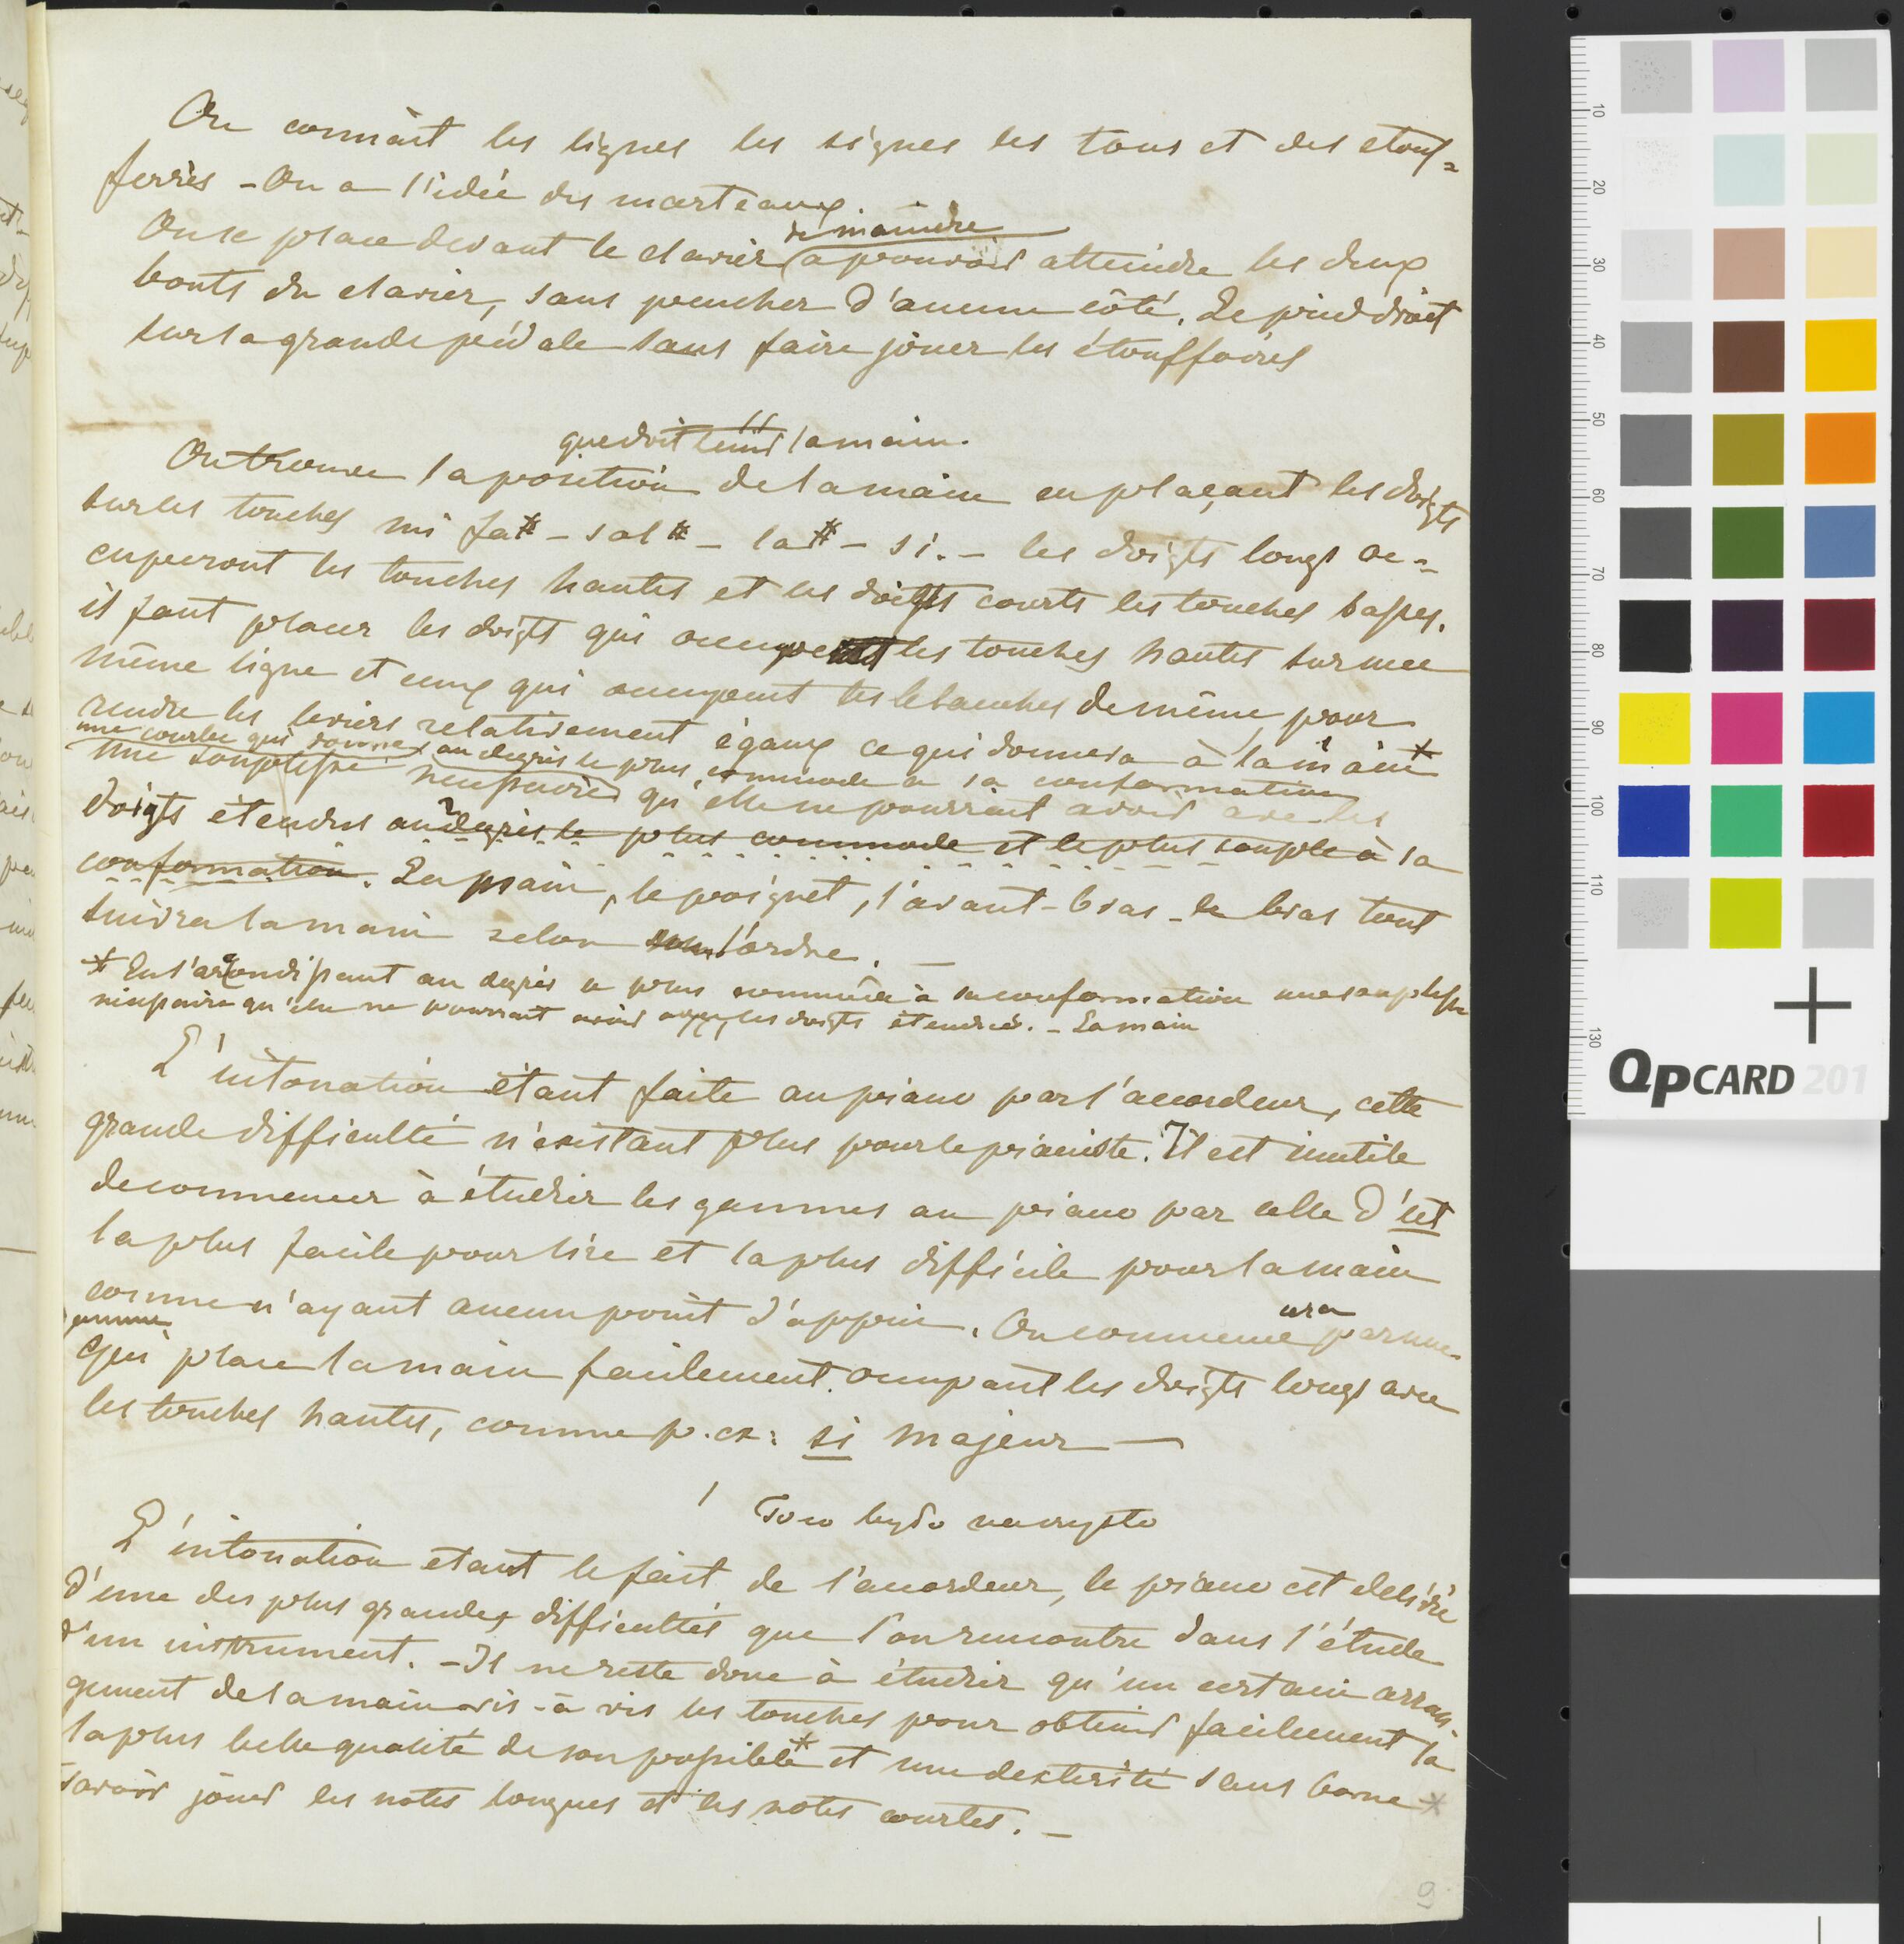 On connait les lignes les signes les tons et des etouf=
ferrès - On a l'idée des marteaux.
de manière
On se place devant le clavier à pouvoir atteindre les deux
bouts du clavier, sans pencher d'aucun côté. Le pied droit
sur la grande pédale sans faire jouer les étouffoirs
que doit tenir la main.
On trouve la position de la main en plaçant les doigts
sur les touches mi fa# - sol# - la# - si. - les doigts longs oc=
cuperont les touches hautes et les doigts courts les touches basses.
il faut placer les doigts qui occupent les touches hautes sur une
même ligne et ceux qui occupent les blanches de même, pour
rendre les leviers relativement égaux ce qui donnera à la main *
une courbe qui donne au degrés le plus commode a sa conformation
une souplesse necessaire qu'elle ne pourrait avoir avec les
doigts étendus au degrés le plus commode et le plus souple à sa
conformation. La main, le poignet, l'avant-bras - le bras tout
suivra la main selon l'ordre. -
* En s'arondissant au degrés le plus commode à sa conformation une souplesse
nécessaire qu'elle ne pourrait avoir avec les doigts étendus. - La main
L'intonation étant faite au piano par l'accordeur, cette
grande difficulté n'existant plus pour le pianiste. Il est inutile
de commencer à étudier les gammes au piano par celle d'ut
la plus facile pour lire et la plus difficile pour la main
comme n'ayant aucun point d'appui. On commencera par une
gamme
qui place la main facilement. occupant les doigts longs avec
les touches hautes, comme p. ex: si majeur —
To co było na czysto
L'intonation etant le fait de l'accordeur, le piano est delivré
d'une des plus grandes difficultés que l'on rencontre dans l'étude
d'un instrument. - Il ne reste donc à étudier qu'un certain arran-
gement de la main vis-à vis les touches pour obtenir facilement la
la plus belle qualité de son possible * et une dexterité sans borne *
savoir jouer les notes longues et les notes courtes. -
9
10
20
30
40
50
60
70
80
90
100
110
130
QPCARD 201